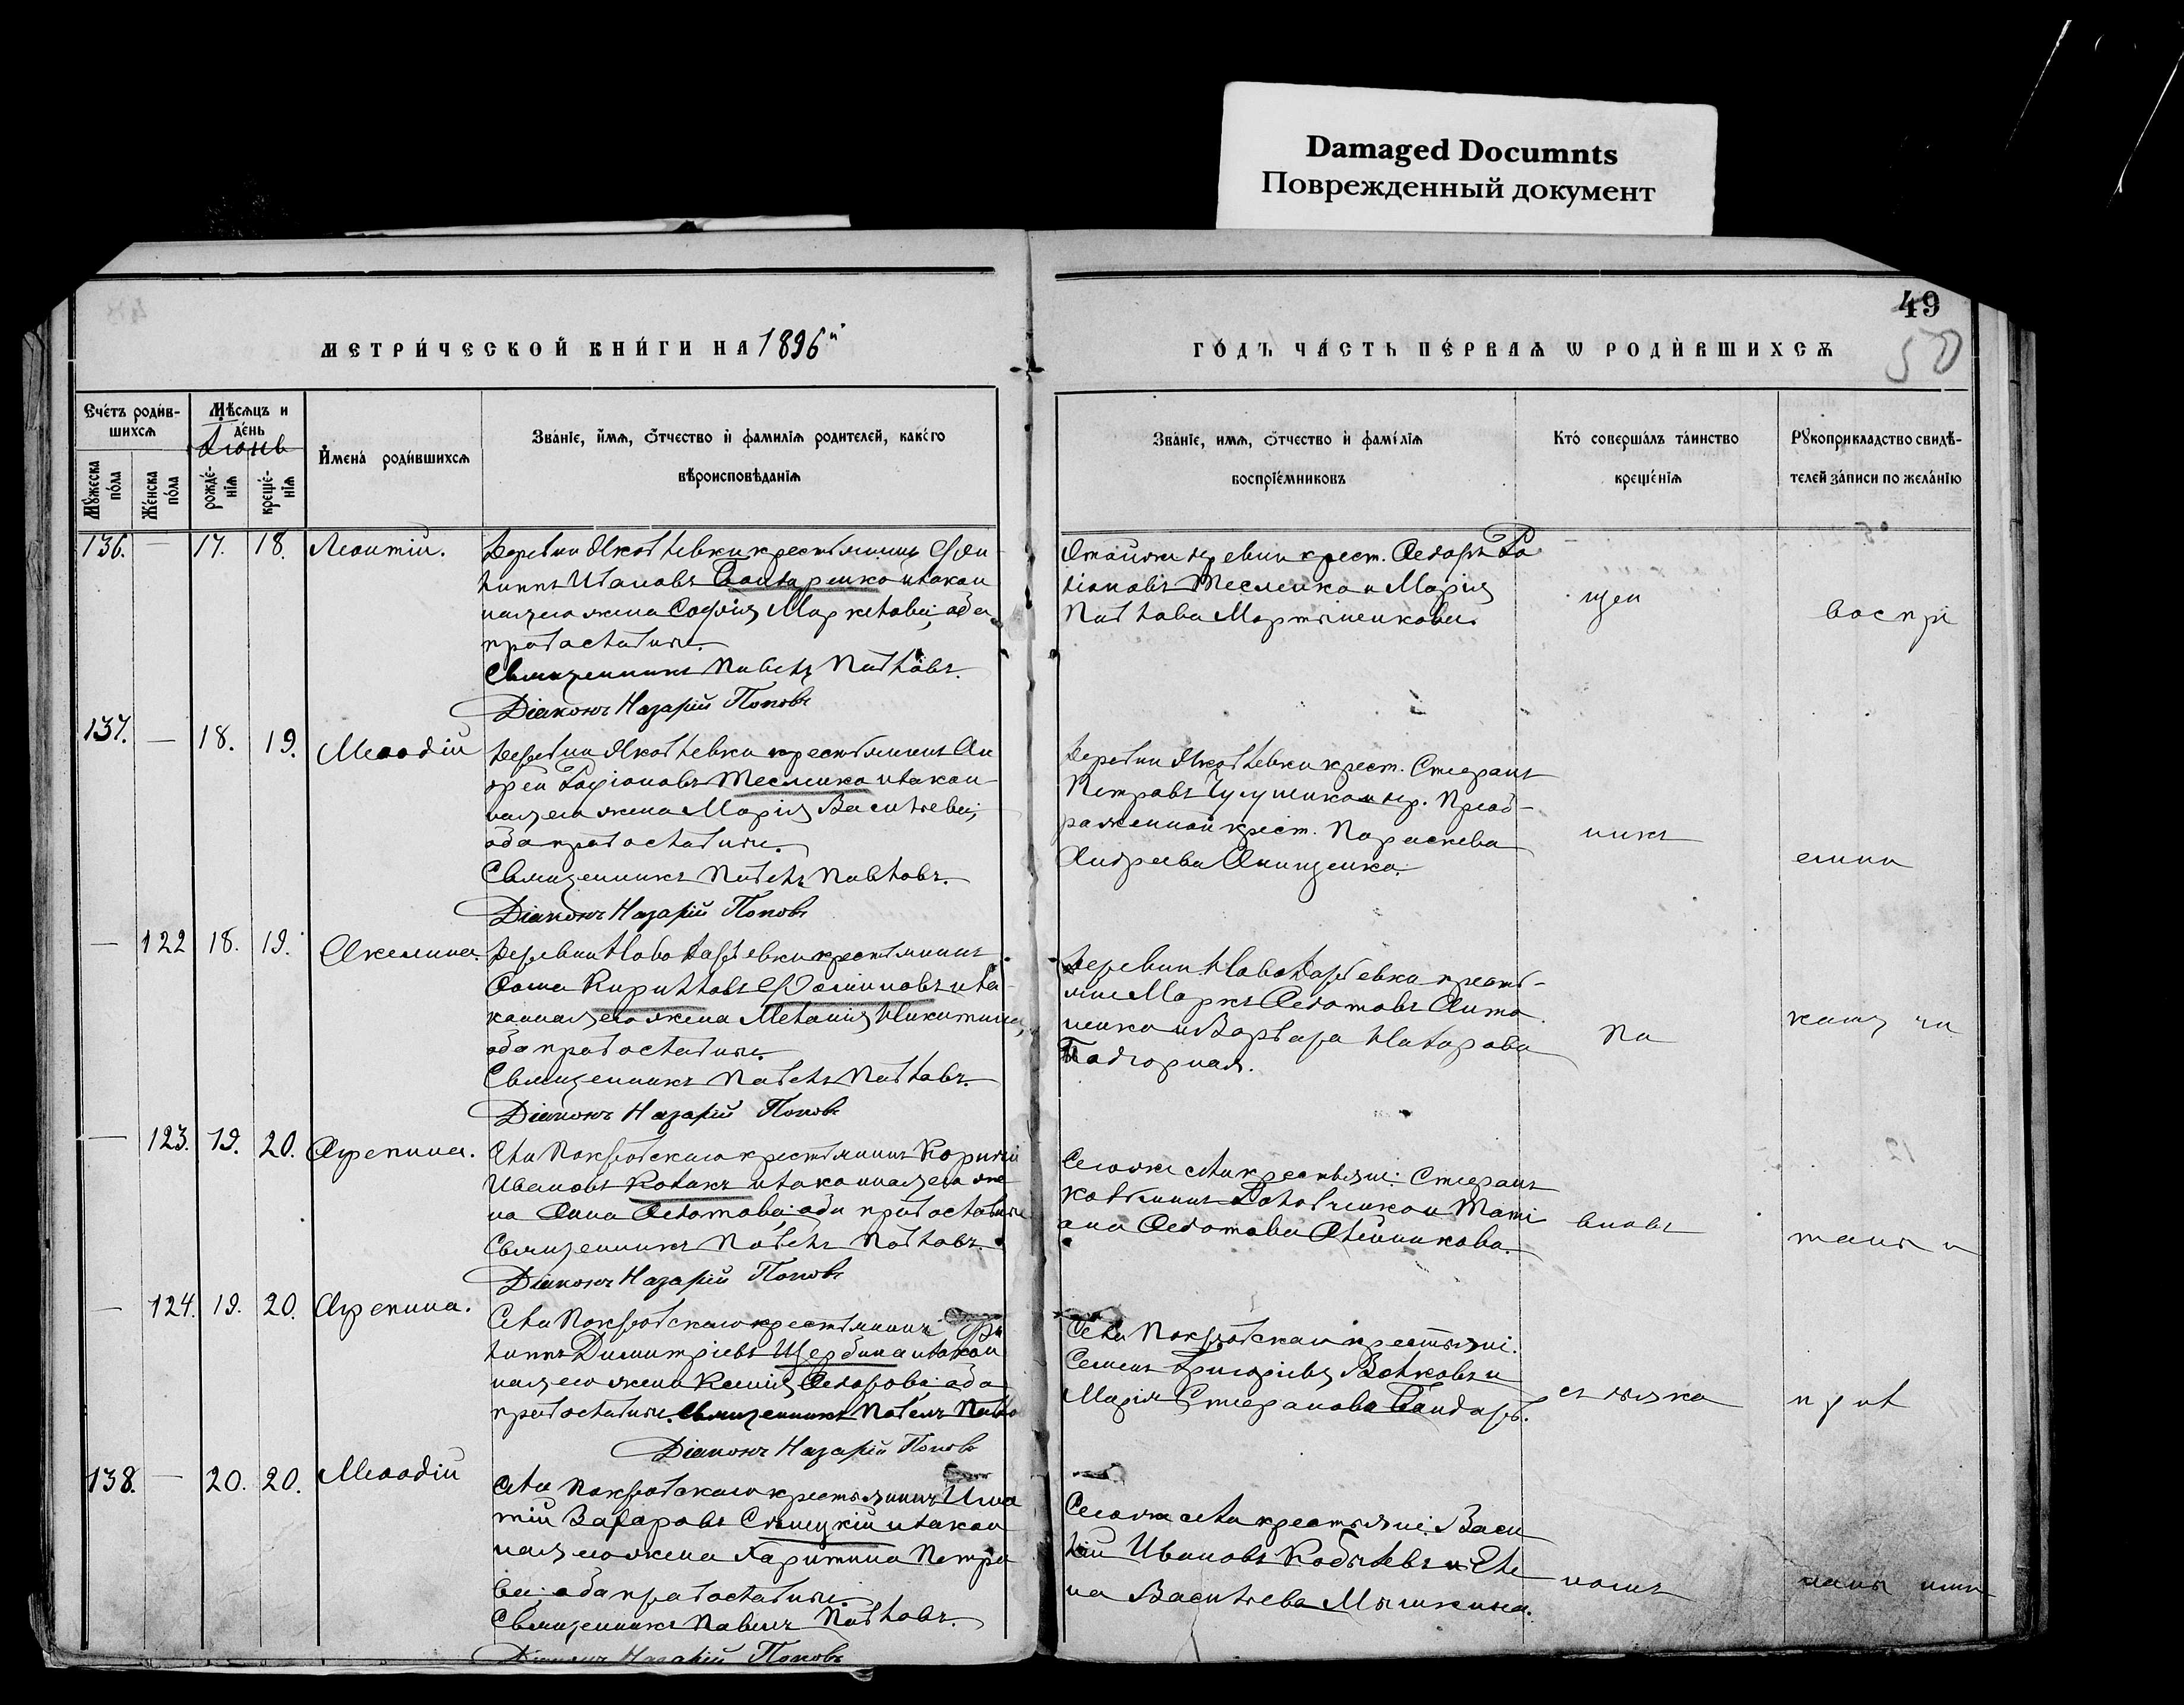 Damaged Documnts
Поврежденный документ
49
50
МЕТРИ́ЧЕСКОЙ КНИ́ГИ НА 1896й
ГО́ДЪ ЧА́СТЬ ПЕ́РВАѦ Ѡ РОДИ́ВШИХСѦ
Сче́тъ роди́в-
шихсѧ
Му́жеска
по́ла
Же́нска
по́ла
Мѣ́сѧцъ и
де́нь
Іюнь
рожде́-
нїѧ
креще́-
нїѧ
И҆мена́ роди́вшихсѧ
Зва́нїе, и҆́мѧ, ѻ҆́тчество и҆ фами́лїѧ родителей, како́го
вѣроисповѣ́данїѧ
Зва́нїе, имѧ, ѻ҆́тчество и҆ фамі́лїѧ
воспрїе́мниковъ
Кто̀ соверша́лъ та́инство
креще́нїѧ
Рꙋкоприкладство свидѣ́-
телей за́писи по жела́нїю
136. — 17. 18. Леонтій.
Деревни Яковлевки крестьянинъ Фи-
липпъ Ивановъ Бондаренко и закон
ная его жена Софія Маркелова; оба
православные.
Священникъ Павелъ Павловъ.
Діаконъ Назарій Поповъ
Тойже деревни крест. Ѳедоръ Ро
діоновъ Тесленко и Марія
Павлова Мартыненкова.
137. — 18. 19. Меѳодій
Деревни Яковлевки крестьянинъ Ан
дрей Родіоновъ Тесленко и закон
ная его жена Марія Васильева;
оба православные.
Священникъ Павелъ Павловъ.
Діаконъ Назарій Поповъ
Деревни Яковлевки крест. Стефанъ
Петровъ и дер. Преоб-
раженной крест. Параскева
Андреева Онищенко.
— 122 18. 19. Акелина.
Деревни крестьянинъ
Ѳома Кирилловъ Фоминовъ и за-
конная его жена Меланія Никитина,
оба православные.
Священникъ Павелъ Павловъ.
Діаконъ Назарій Поповъ
Деревни кресть-
яне Маркъ Ѳедотовъ Анто
ненко и Варвара Назарова
Подгорная.
— 123. 19. 20. Агрепина.
Села Покровскаго крестьянинъ Корнилій
Ивановъ Ковакъ и законная его же
на Анна Ѳедотова; оба православные
Священникъ Павелъ Павловъ.
Діаконъ Назарій Поповъ
Того же села крестьяне: Стефанъ
и Тати
ана Ѳедотова Олейникова.
— 124. 19. 20. Агрепина.
Села Покровскаго крестьянинъ Фи
липпъ Димитріевъ Щербина и закон
ная его жена Ксенія Ѳедорова; оба
православные. Священникъ Павелъ Павло
Діаконъ Назарій Поповъ
Села Покровскаго крестьяне:
Семенъ Григорьевъ Волковъ и
Марія Стефанова Бондарь.
138. — 20. 20. Меѳодій
Села Покровскаго крестьянинъ Игна
тій Захаровъ и закон
ная его жена Харитина Петро
ва; оба православные.
Священникъ Павелъ Павловъ.
Діаконъ Назарій Поповъ
Того же села крестьяне: Васи
лій Ивановъ Кобылевъ и Еле
на Васильева Мышкина.